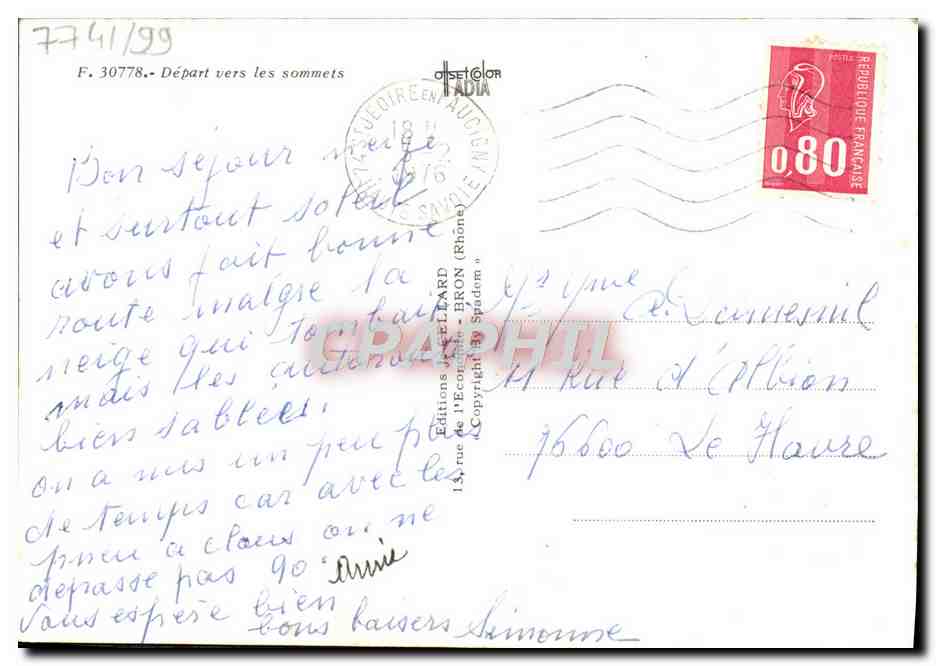 7741/99
F. 30778.- Départ vers les sommets
OFFSET COLOR
IADIA
74 ST JEOIRE EN FAUCIGNY
18 H
1976
HTE SAVOIE
POSTES
RÉPUBLIQUE FRANÇAISE
0,80
Bon séjour neige
et surtout soleil
avons fait bonne
route malgre la
neige qui tombait
mais les autoroutes
bien sablées.
on a mis un peu plus
de temps car avec les
pneu a clous on ne
depasse pas 90
Annie
Vous espère bien
bons baisers Simonne
Editions J. CELLARD
13, rue de l'Economie - BRON (Rhône)
« Copyright By Spadem »
Mr Mme Dumesnil
11 Rue d'Albion
76600 Le Havre
CPAPHIL